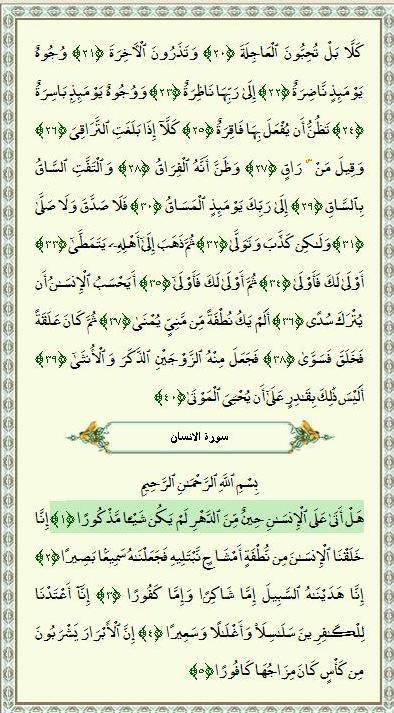 كَلَّا بَلْ تُحِبُّونَ ٱلْعَاجِلَةَ ﴿٢٠﴾ وَتَذَرُونَ ٱلْآخِرَةَ ﴿٢١﴾ وُجُوهٌ
يَوْمَئِذٍ نَّاضِرَةٌ ﴿٢٢﴾ إِلَىٰ رَبِّهَا نَاظِرَةٌ ﴿٢٣﴾ وَوُجُوهٌ يَوْمَئِذٍ بَاسِرَةٌ
﴿٢٤﴾ تَظُنُّ أَن يُفْعَلَ بِهَا فَاقِرَةٌ ﴿٢٥﴾ كَلَّآ إِذَا بَلَغَتِ ٱلتَّرَاقِىَ ﴿٢٦﴾
وَقِيلَ مَنْ ۜ رَاقٍ ﴿٢٧﴾ وَظَنَّ أَنَّهُ ٱلْفِرَاقُ ﴿٢٨﴾ وَٱلْتَفَّتِ ٱلسَّاقُ
بِٱلسَّاقِ ﴿٢٩﴾ إِلَىٰ رَبِّكَ يَوْمَئِذٍ ٱلْمَسَاقُ ﴿٣٠﴾ فَلَا صَدَّقَ وَلَا صَلَّىٰ
﴿٣١﴾ وَلَـٰكِن كَذَّبَ وَتَوَلَّىٰ ﴿٣٢﴾ ثُمَّ ذَهَبَ إِلَىٰٓ أَهْلِهِۦ يَتَمَطَّىٰٓ ﴿٣٣﴾
أَوْلَىٰ لَكَ فَأَوْلَىٰ ﴿٣٤﴾ ثُمَّ أَوْلَىٰ لَكَ فَأَوْلَىٰٓ ﴿٣٥﴾ أَيَحْسَبُ ٱلْإِنسَـٰنُ أَن
يُتْرَكَ سُدًى ﴿٣٦﴾ أَلَمْ يَكُ نُطْفَةً مِّن مَّنِىٍّ يُمْنَىٰ ﴿٣٧﴾ ثُمَّ كَانَ عَلَقَةً
فَخَلَقَ فَسَوَّىٰ ﴿٣٨﴾ فَجَعَلَ مِنْهُ ٱلزَّوْجَيْنِ ٱلذَّكَرَ وَٱلْأُنثَىٰٓ ﴿٣٩﴾
أَلَيْسَ ذَٰلِكَ بِقَـٰدِرٍ عَلَىٰٓ أَن يُحْـِۧىَ ٱلْمَوْتَىٰ ﴿٤٠﴾
سورة الانسان
بِسْمِ ٱللَّهِ ٱلرَّحْمَـٰنِ ٱلرَّحِيمِ
هَلْ أَتَىٰ عَلَى ٱلْإِنسَـٰنِ حِينٌ مِّنَ ٱلدَّهْرِ لَمْ يَكُن شَيْـًٔا مَّذْكُورًا ﴿١﴾ إِنَّا
خَلَقْنَا ٱلْإِنسَـٰنَ مِن نُّطْفَةٍ أَمْشَاجٍ نَّبْتَلِيهِ فَجَعَلْنَـٰهُ سَمِيعًۢا بَصِيرًا ﴿٢﴾
إِنَّا هَدَيْنَـٰهُ ٱلسَّبِيلَ إِمَّا شَاكِرًا وَإِمَّا كَفُورًا ﴿٣﴾ إِنَّآ أَعْتَدْنَا
لِلْكَـٰفِرِينَ سَلَـٰسِلَا۟ وَأَغْلَـٰلًا وَسَعِيرًا ﴿٤﴾ إِنَّ ٱلْأَبْرَارَ يَشْرَبُونَ
مِن كَأْسٍ كَانَ مِزَاجُهَا كَافُورًا ﴿٥﴾